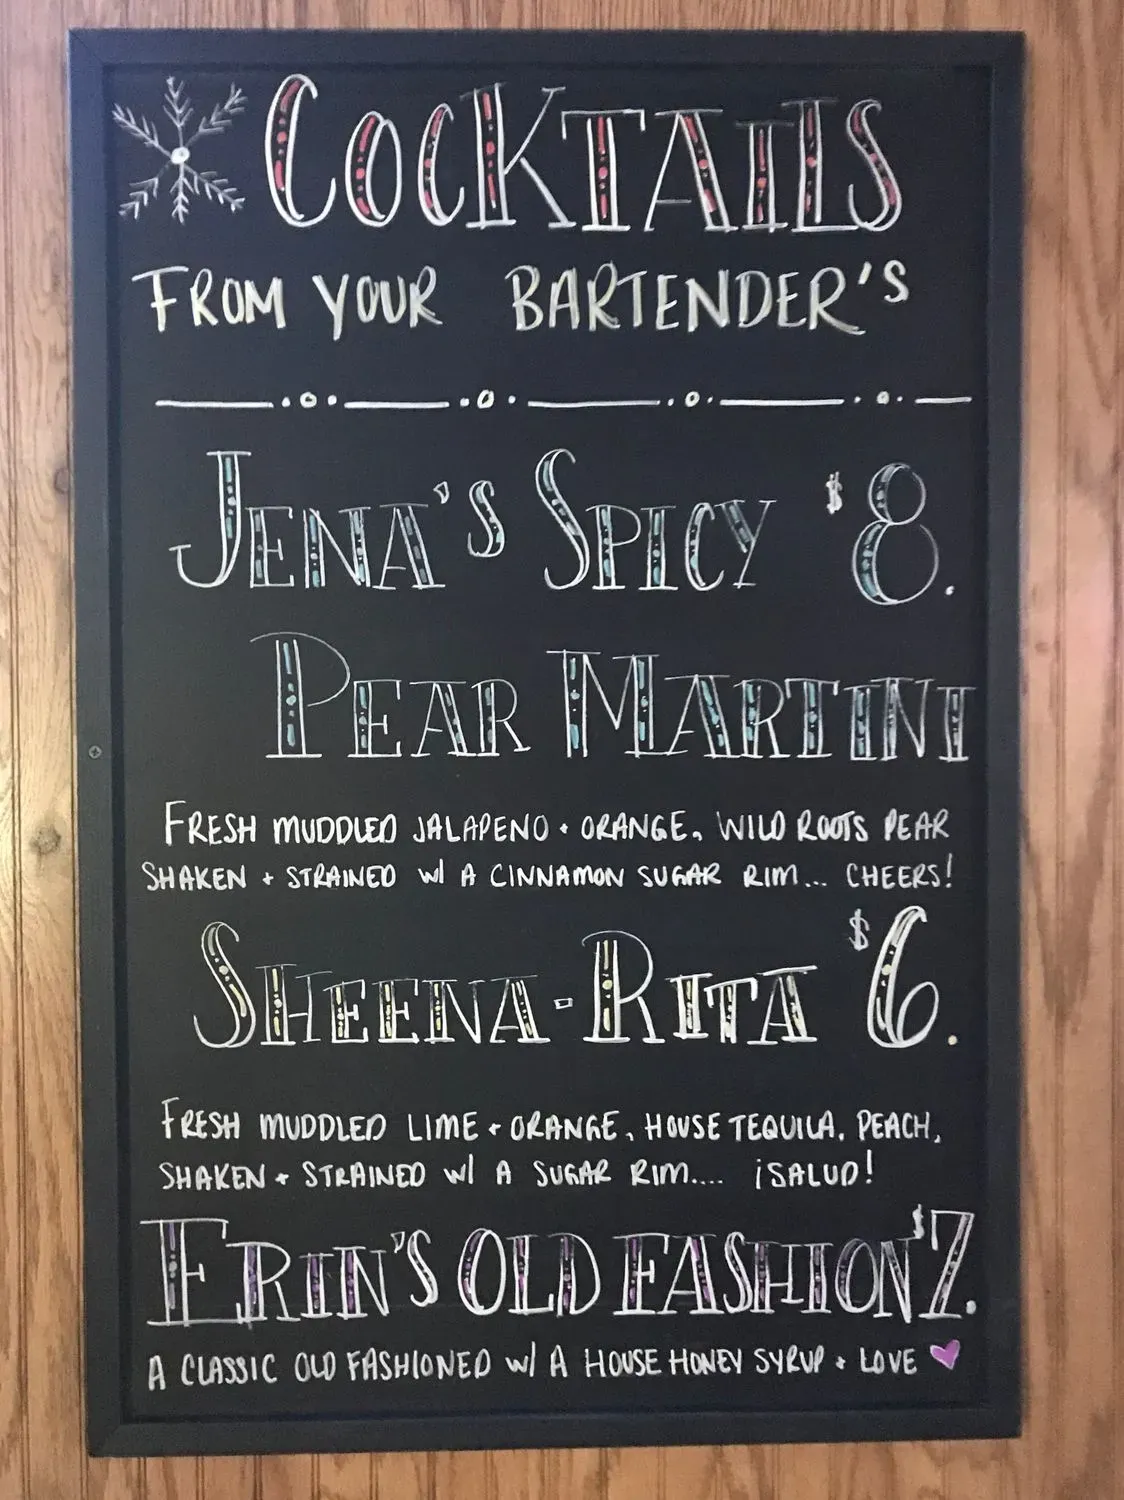 COCKTAILS
FROM YOUR BARTENDER'S
JENA'S SPICY $8.
PEAR MARTINI
FRESH MUDDLED JALAPENO + ORANGE, WILD ROOTS PEAR
SHAKEN + STRAINED w/ A CINNAMON SUGAR RIM... CHEERS!
SHEENA-RITA $6.
FRESH MUDDLED LIME + ORANGE, HOUSE TEQUILA, PEACH,
SHAKEN + STRAINED w/ A SUGAR RIM.... ¡SALUD!
ERIN'S OLD FASHION $7.
A CLASSIC OLD FASHIONED w/ A HOUSE HONEY SYRUP + LOVE